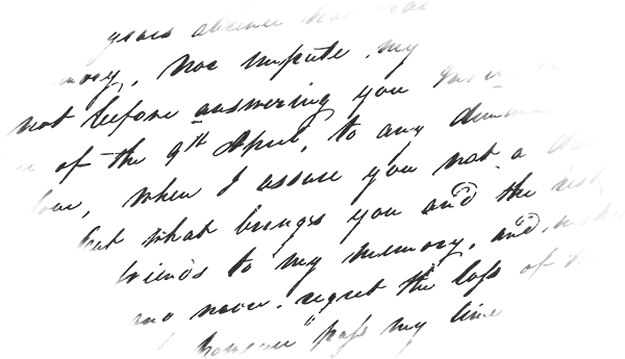 years absence has
nor impute my
not before answering you
of the 9th April, to any
love, when I assure you not a
but what brings you and the rest
friends to my memory, and, makes
and never regret the loss of
however "pass my time